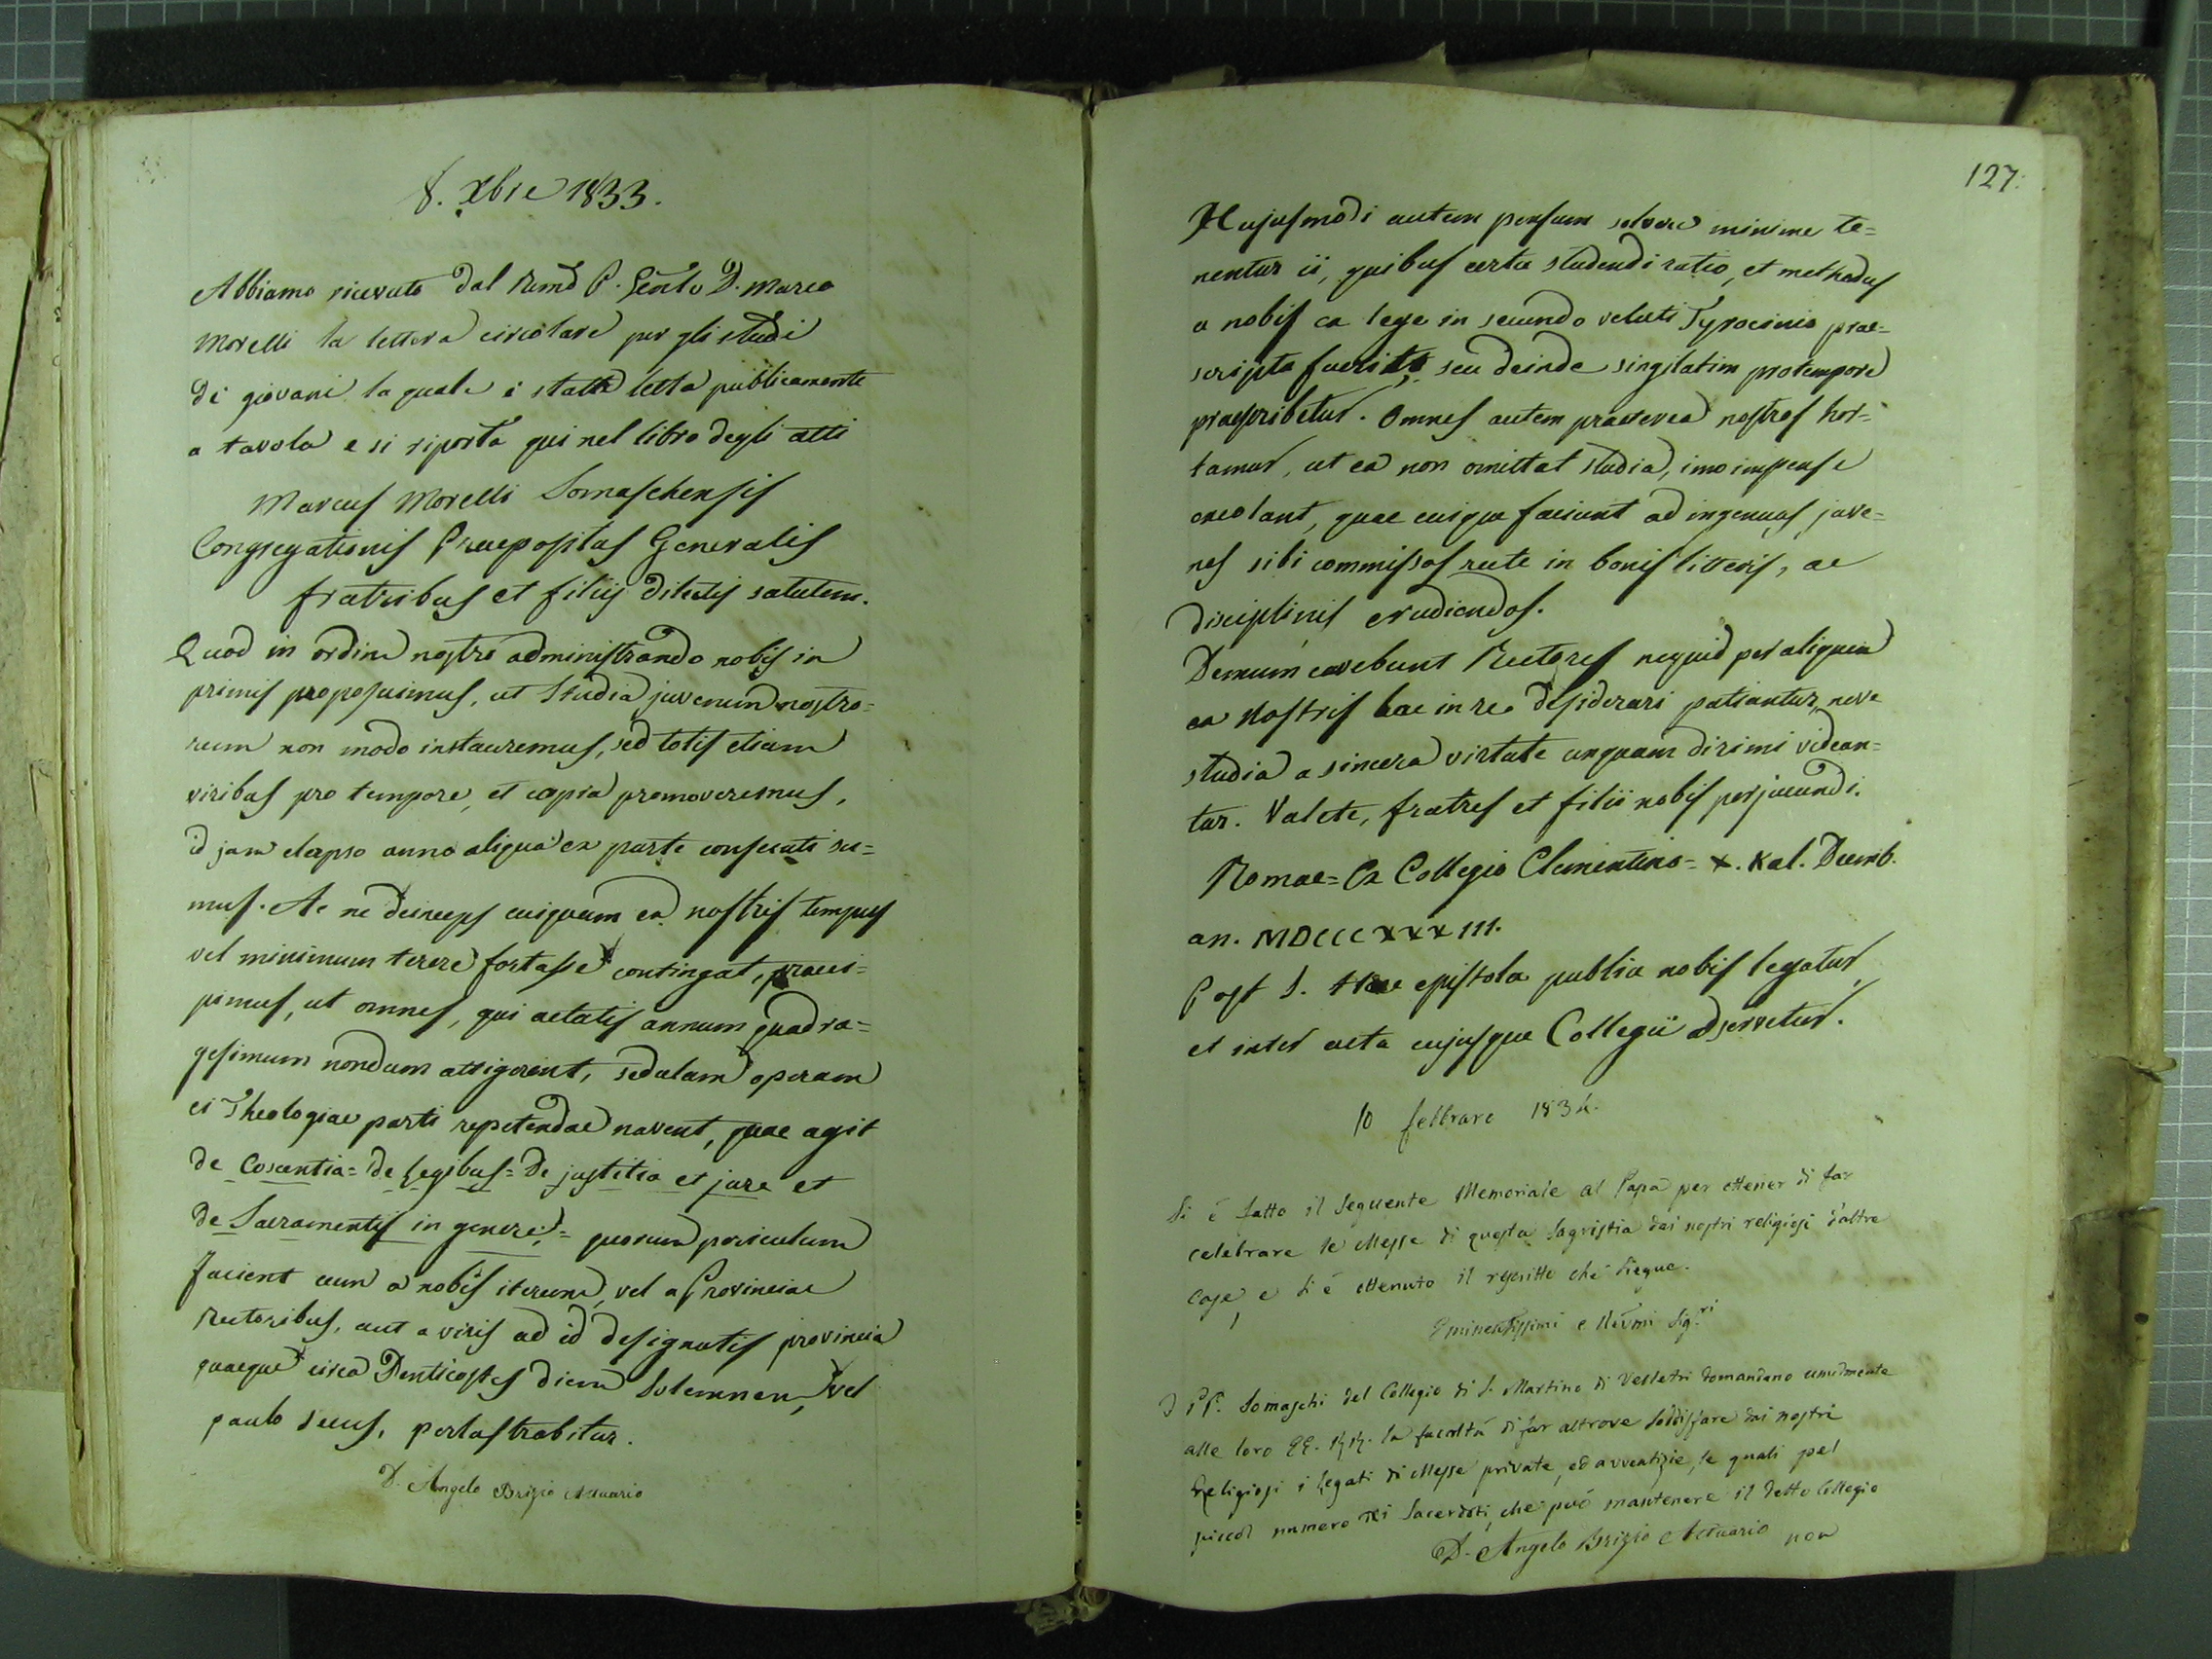 8. Xbre 1833.
Abbiamo ricevuto dal Rmo P. Genle D. Marco
Morelli la lettera circolare per gli studi
di giovani la quale è stata letta pubblicamente
a tavola e si riporta qui nel libro degli atti
Marcus Morelli Somaschensis
Congregationis Praepositus Generalis
fratribus et filiis dilectis salutem.
Quod in ordine nostro administrando nobis in
primis proposuimus, ut studia juvenum nostro=
rum non modo instauremus, sed totis etiam
viribus pro tempore, et copia promoveremus,
id jam elapso anno aliqua ex parte consecuti su=
mus. Ac ne deinceps cuiquam ex nostris tempus
vel minimum terere fortasse contingat, praeci=
pimus, ut omnes, qui aetatis annum quadra=
gesimum nondum attigerint, sedulam operam
ei Theologiae parti repetendae navent, quae agit
de Coscentia= de Legibus= De justitia et jure et
de Sacramentis in genere;= quorum periculum
facient cum a nobis iterum, vel a Provinciae
Rectoribus, aut a viris ad id designatis provincia
quaeque circa Penticostes diem Solemnen, vel
paulo secus, perlustrabitur.
D. Angelo Brizio Attuario
127.
Hujusmodi autem pensum solvere minime te=
nentur ii, quibus certa studendi ratio, et methodus
a nobis ea lege in secundo veluti Tyrocinio prae=
scripta fuerit, seu deinde singilatim protempore
praescribetur. Omnes autem praeterea nostros hor=
tamur, ut ea non omittat studia, imo impense
excolant, quae cuique faciunt ad ingenuos juve=
nes sibi commissos recte in bonis litteris, ac
disciplinis erudiendos.
Demum cavebunt Rectores nequid per aliquem
ex Nostris hac in re desiderari patiantur, neve
studia a sincera virtute unquam dirimi videan=
tur. Valete, fratres et filii nobis perjucundi.
Romae= Ex Collegio Clementino= X. Kal. Decemb.
an. MDCCCXXXIII.
Post S. Haec epistola publice nobis legatur,
et inter acta cujusque Collegii adservetur.
10 febbraro 1834.
Si è fatto il seguente Memoriale al Papa per ottener di far
celebrare le Messe di questa Sagristia dai nostri religiosi d'altre
Case, e si è ottenuto il rescritto che siegue.
Eminentissimi e Revmi Sig.ri
I PP. Somaschi del Collegio di S. Martino di Velletri domandano umilmente
alle loro EE. RR. la facoltà di far altrove soddisfare dai nostri
Religiosi i Legati di Messe private, ed avventizie, le quali pel
piccol numero dei Sacerdoti, che può mantenere il detto Collegio
D. Angelo Brizio Attuario non